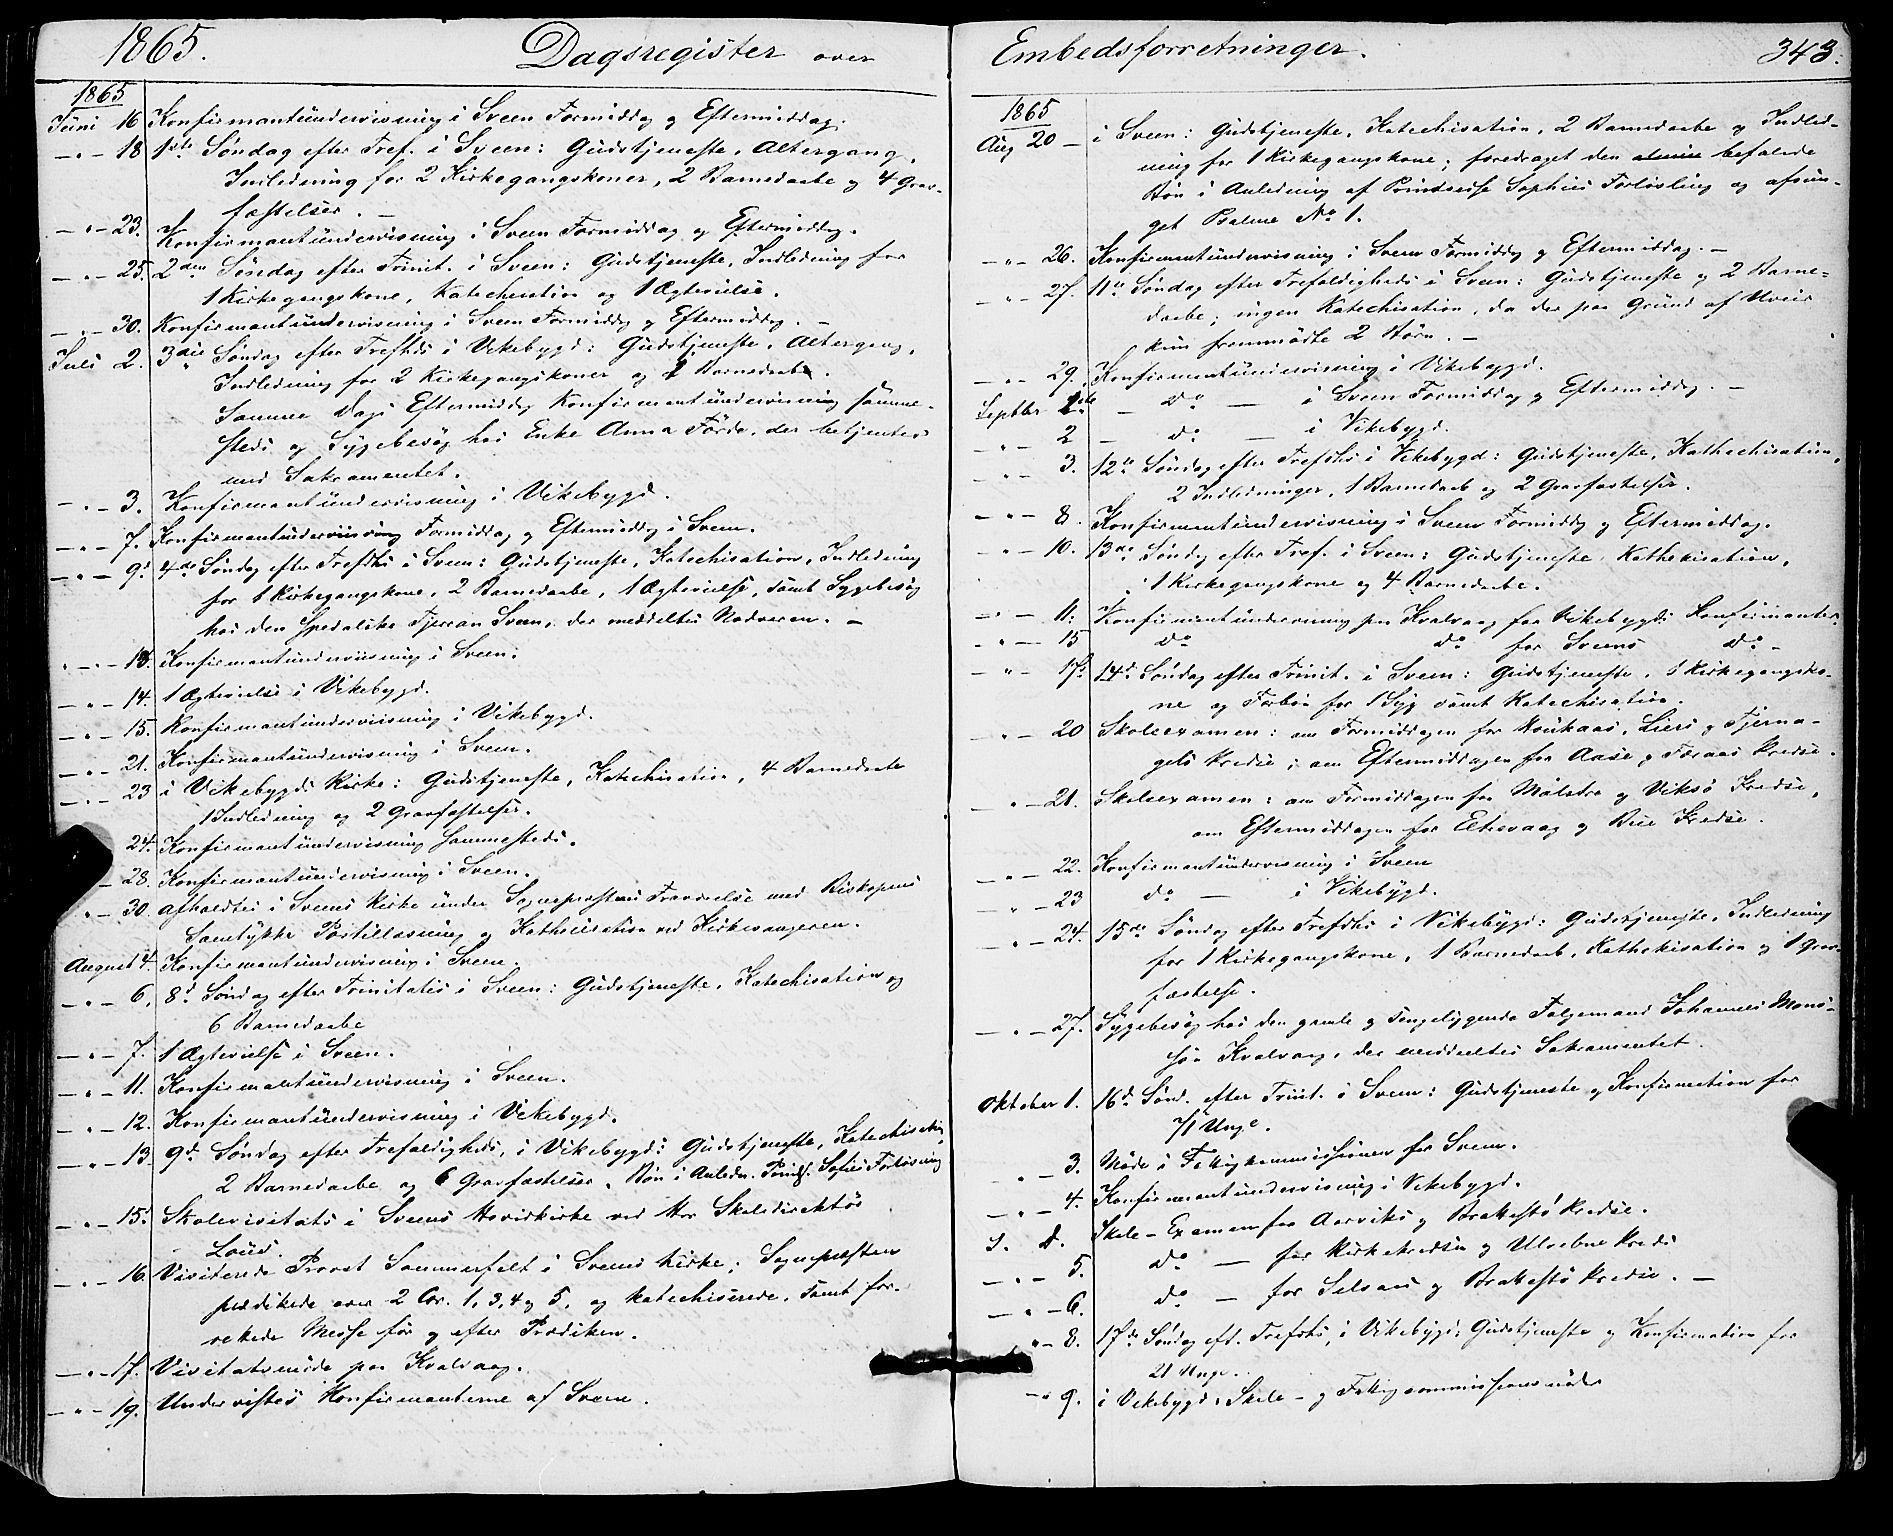 1865. Dagsregister over
1865
Juni 16 Konfirmantundervisning i Sveen Formiddag og Eftermiddag.
— " — 18 1ste Søndag efter Tref. i Sveen: Gudstjeneste, Altergang,
Indledning for 2 Kirkegangskoner, 2 Barnedaabe og 4 Grav-
fæstelser. —
— " — 23. Konfirmantundervisning i Sveen Formiddag og Eftermiddag.
— " — 25. 2den Søndag efter Trinit. i Sveen: Gudstjeneste, Indledning for
1 Kirkegangskone, Katechisation og 1 Ægtevielse.
— " — 30. Konfirmantundervisning i Sveen Formiddag og Eftermiddag. —
Juli 2. 3die Søndag efter Trefhds i Vikebygd: Gudstjeneste, Altergang,
Indledning for 2 Kirkegangskoner og 1 Barnedaab.
Samme Dags Eftermiddag Konfirmantundervisning samme-
steds og Sygebesøg hos Enke Anna Förde, der betjentes
med Sakramentet.
— " — 3. Konfirmantundervisning i Vikebygd.
— " — 7. Konfirmantundervisning Formiddag og Eftermiddag i Sveen.
— " — 9. 4de Søndag efter Trefhds i Sveen: Gudstjeneste, Katechisation, Indledning
for 1 Kirkegangskone, 2 Barnedaabe, 1 Ægtevielse, samt Sygebesøg
hos den Spedalske Sveen, der meddeltes Nadveren. —
— " — 13. Konfirmantundervisning i Sveen.
— " — 14. 1 Ægtevielse i Vikebygd.
— " — 15. Konfirmantundervisning i Vikebygd.
— " — 21. Konfirmantundervisning i Sveen.
— " — 23 i Vikebygds Kirke: Gudstjeneste, Katechisation, 4 Barnedaabe
1 Indledning og 2 Gravfæstelser.
24. Konfirmantundervisning sammesteds.
— 28. Konfirmantundervisning i Sveen.
" — 30 afholdtes i Sveens Kirke under Sogneprestens Fraværelse med Biskopens
Samtykke Postillæsning og Kathechisation ved Kirkesangeren.
August 4. Konfirmantundervisning i Sveen.
— " — 6. 8d Søndag efter Trinitatis i Sveen: Gudstjeneste, Katechisation og
6 Barnedaabe
— " — 7. 1 Ægtevielse i Sveen.
— " — 11. Konfirmantundervisning i Sveen.
— " — 12. Konfirmantundervisning i Vikebygd.
— " — 13 9d. Søndag efter Trefoldighds. i Vikebygd: Gudstjeneste, Katechisation
2 Barnedaabe og 6 Gravfæstelser. Bøn i Anledn. Prinds. Sofies Forløsning
— " — 15. Skolevisitats i Sveens Hovedkirke ved Hr Skoledirektør
— " — 16. Visiterede Provst Sommerfelt i Sveens Kirke; Sognepresten
prædikede over 2 Cor. 1, 3, 4 og 5, og katechiserede, samt for-
rettede Messe før og efter Prædiken.
— " — 17. Visitatsmøde paa Kvalvaag.
— " — 19. Undervistes Konfirmanterne af Sveen.
Embedsforretninger. 343.
1865
Aug 20 — i Sveen: Gudstjeneste, Katechisation, 2 Barnedaabe og Indled-
ning for 1 Kirkegangskone; foredraget den befalede
Bøn i Anledning af Prindsesse Sophies Forløsning og afsun-
get Psalme No 1.
— " — 26. Konfirmantundervisning i Sveen Formiddag og Eftermiddag. —
— " — 27. 11te Søndag efter Trefoldigheds i Sveen: Gudstjeneste og 2 Barne-
daabe; ingen Katechisation, da der paa Grund af Uveir
kun fremmødte 2 Børn. —
— " — 29. Konfirmantundervisning i Vikebygd.
Septbr 1ste — Do — i Sveen Formiddag og Eftermiddag. —
— " — 2 — do — i Vikebygd.
— " — 3. 12te Søndag efter Trefhds i Vikebygd: Gudstjeneste, Kathechisation,
2 Indledninger, 1 Barnedaab og 2 Gravfæstelser.
— " — 8. Konfirmantundervisning i Sveen Formiddag og Eftermiddag.
— " — 10. 13de Søndag efter Tref. i Sveen: Gudstjeneste, Kathekisation,
1 Kirkegangskone og 4 Barnedaabe.
— " — 11. Konfirmantundervisning paa Kvalvaag for Vikebygds Konfirmanter.
— " — 15 Do do for Sveens do —
— " — 17. 14d. Søndag efter Trinit. i Sveen: Gudstjeneste, 1 Kirkegangsko-
ne og Forbøn for 1 Syg samt Katechisation.
— " — 20 Skoleexamen: om Formiddagen for Houkaas, Liers og Tjerna-
gels Kredse; om Eftermiddagen for Aase og Færaas Kredse.
— " — 21. Skoleexamen: om Formiddagen for Mølstre og Viksø Kredse,
om Eftermiddagen for Eltravaag og Bue Kredse.
— " — 22. Konfirmantundervisning i Sveen
— " — 23 do — i Vikebygd.
— " — 24. 15de Søndag efter Trefhds i Vikebygd: Gudstjeneste, Indledning
for 1 Kirkegangskone, 1 Barnedaab, Kathekisation og 1 Grav-
fæstelse.
— " — 27. Sygebesøg hos den gamle og sengeliggende Følgemand Johannes Mons-
søn Kvalvaag, der meddeltes Sakramentet.
Oktober 1. 16d. Sønd. efter Trinit. i Sveen: Gudstjeneste og Konfirmation for
71 Unge.
— " — 3. Møde i Fattigkommissionen for Sveen.
— " — 4. Konfirmantundervisning i Vikebygd.
S. D. Skole-Examen for Aarviks og Brattestø Kredse.
— " — 5. do — for Kirkekredsen og Ulvebne Kreds
— " — 6. do — for og Brattestø Kredse. —
" — 8. 17de Søndag eft. Trefhds. i Vikebygd: Gudstjeneste og Konfirmation for
21 Unge.
— " 9. i Vikebygd: Skole- og Fattigcommissionsmøde